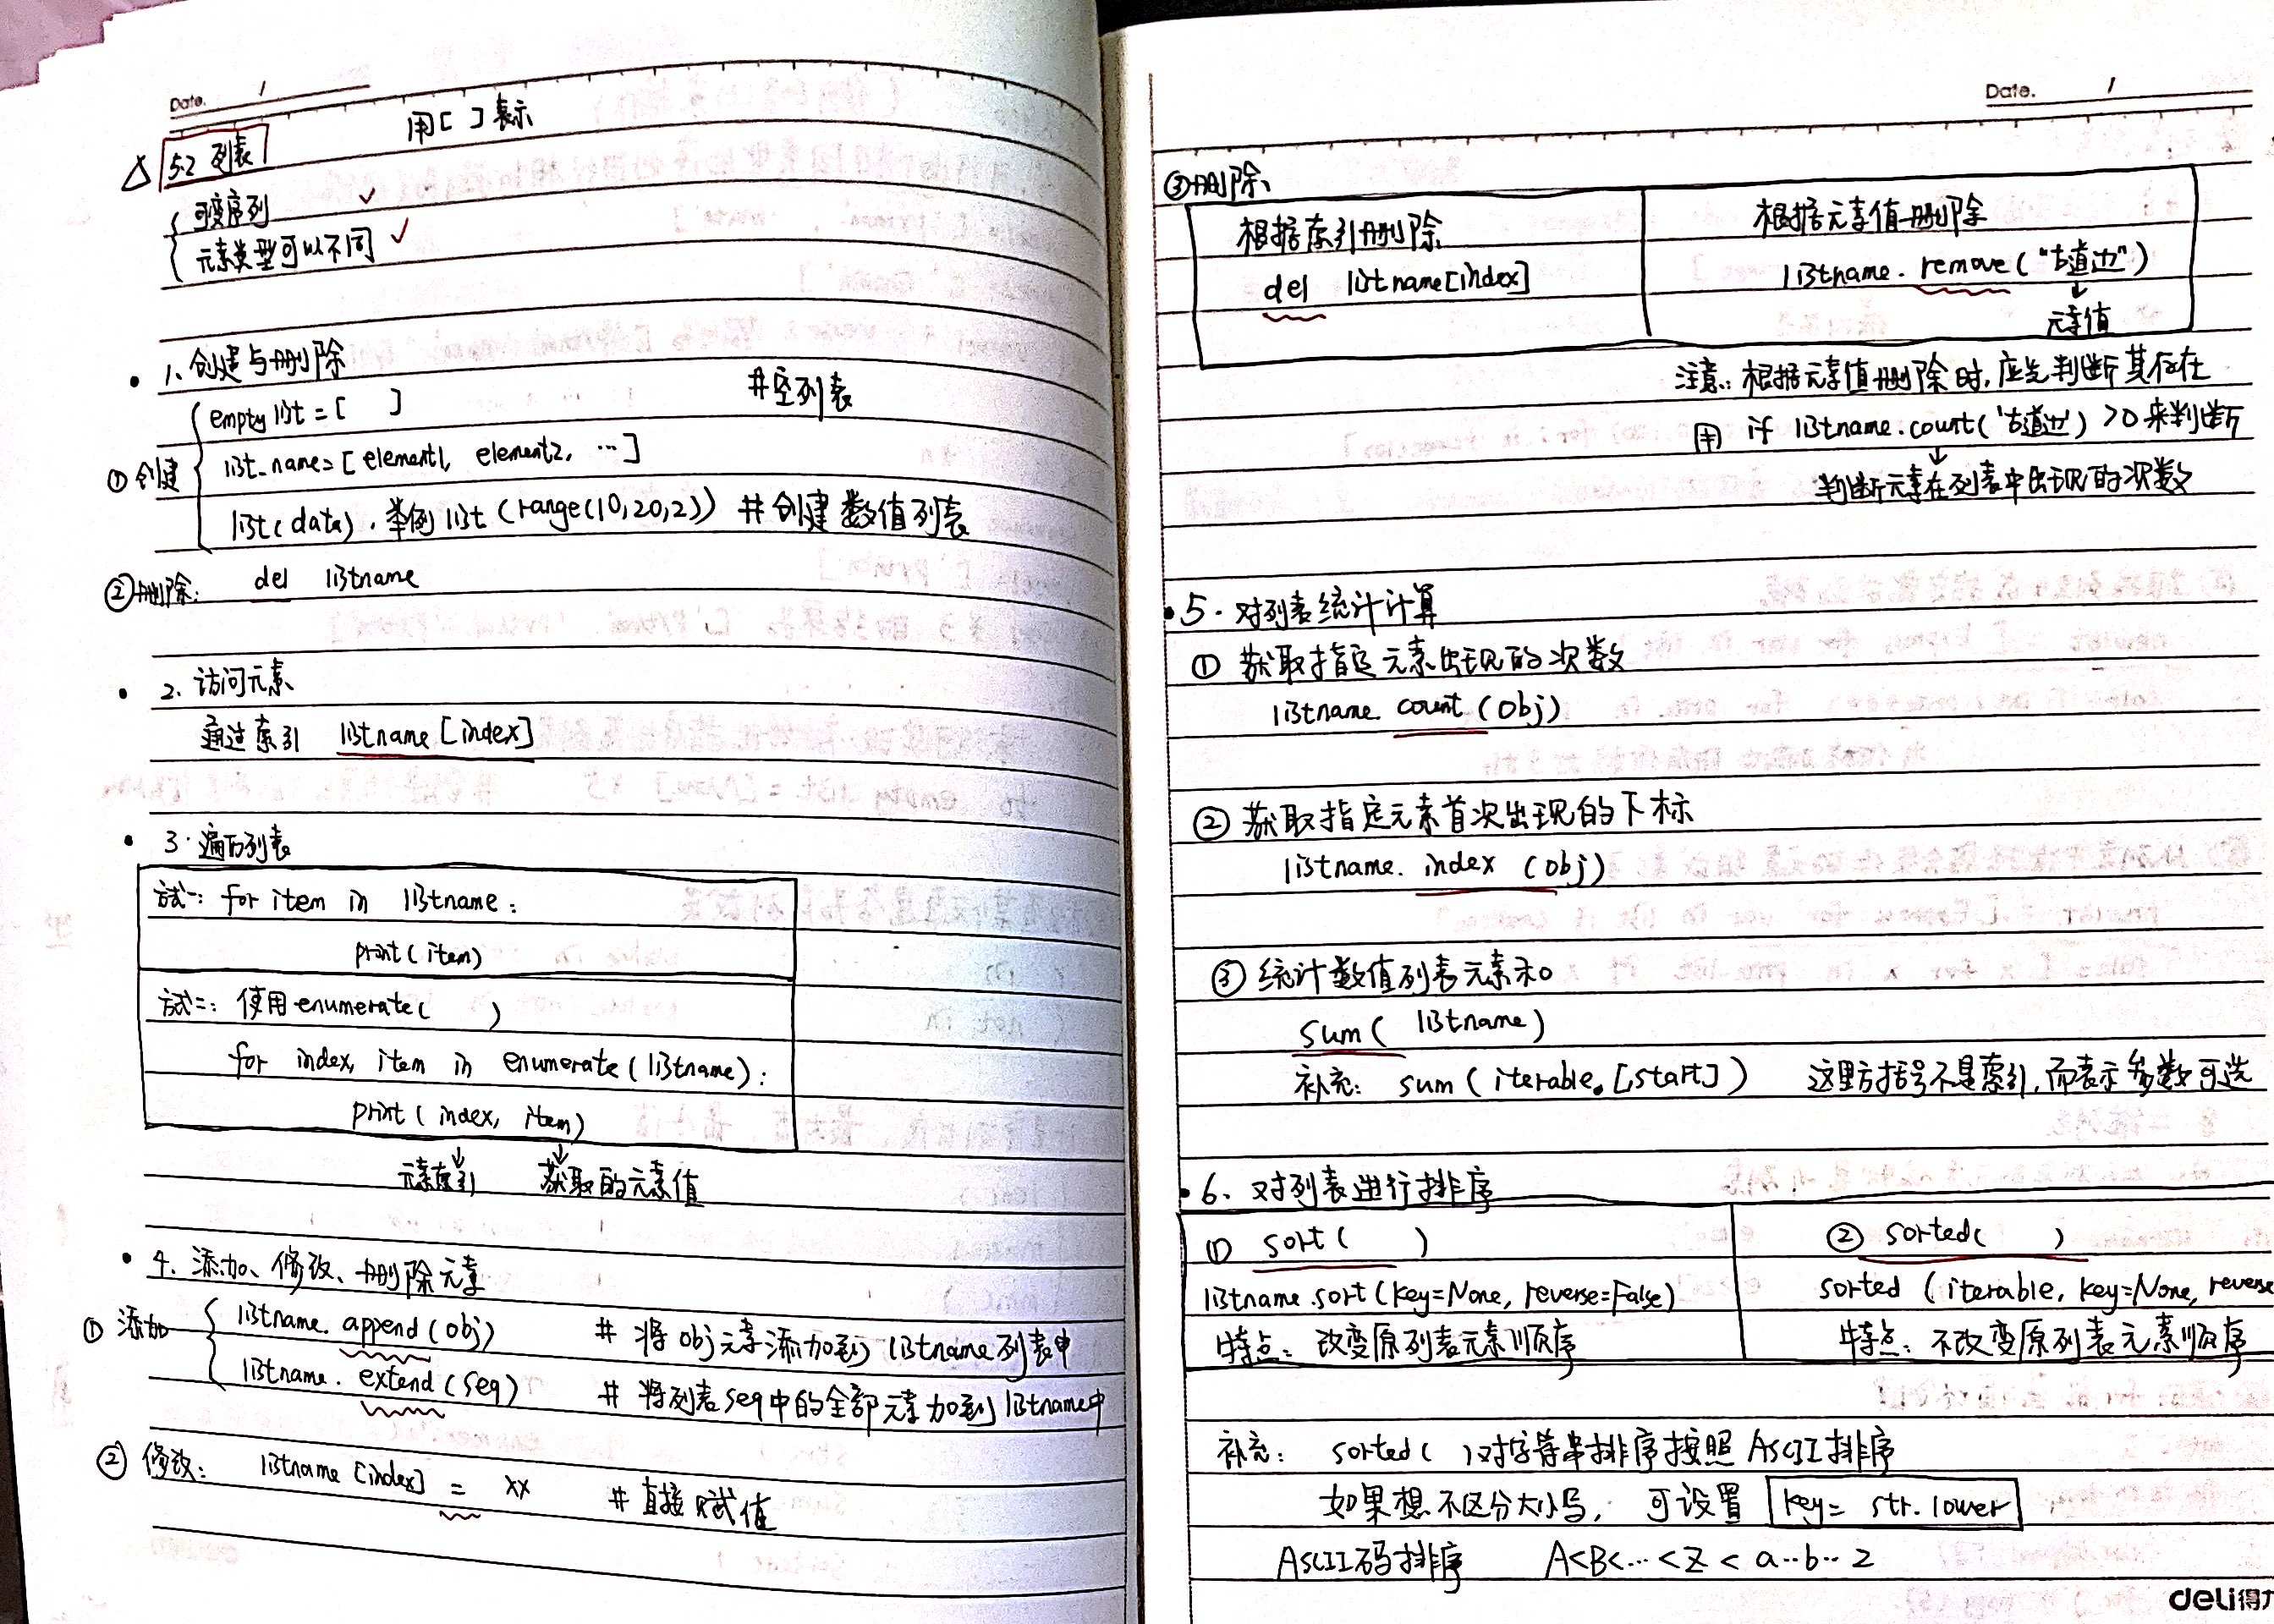 Date. /
5.2 列表 用[ ]表示
可变序列 ✓
元素类型可以不同 ✓
1、创建与删除
emptylist = [ ] #空列表
①创建 list_name=[element1, element2, …]
list(data). 举例 list (range(10,20,2)) #创建数值列表
②删除: del listname
2. 访问元素
通过索引 listname[index]
3. 遍历列表
方式一: for item in listname:
print(item)
方式二: 使用enumerate( )
for index, item in enumerate(listname):
print(index, item)
元素索引 获取的元素值
4. 添加、修改、删除元素
① 添加 listname.append(obj) # 将obj元素添加到listname列表中
listname.extend(seq) # 将列表seq中的全部元素加到listname中
② 修改: listname[index] = xx # 直接赋值
Date. /
③删除
根据索引删除 根据元素值删除
del listname[index] listname.remove("古道边")
元素值
注意: 根据元素值删除时,应先判断其存在
用 if listname.count('古道边') >0 来判断
判断元素在列表中出现的次数
5. 对列表统计计算
① 获取指定元素出现的次数
listname.count(obj)
② 获取指定元素首次出现的下标
listname.index (obj)
③ 统计数值列表元素和
sum( listname)
补充: sum(iterable,[start]) 这里方括号不是索引,而表示参数可选
6. 对列表进行排序
① sort( ) ② sorted( )
listname.sort(key=None, reverse=False) sorted (iterable, key=None, reverse
特点: 改变原列表元素顺序 特点: 不改变原列表元素顺序
补充: sorted( )对字符串排序按照ASCII排序
如果想不区分大小写, 可设置 key= str.lower
ASCII码排序 A<B<…<Z < a…b…z
deli得力